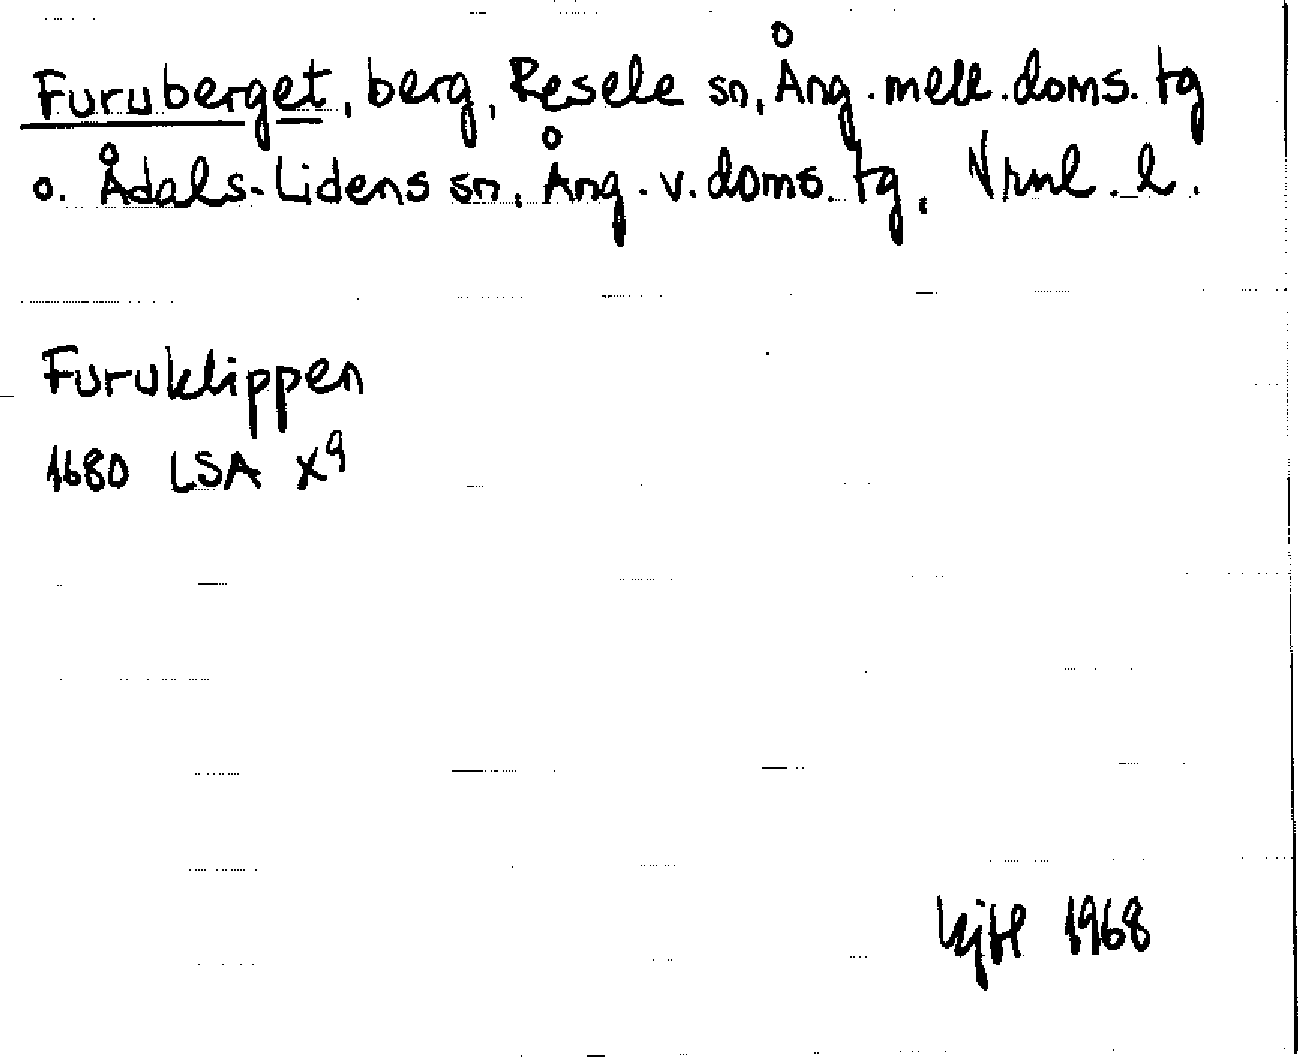 Furuberget, berg, Resele sn, Ång. mell. doms. tg
o. Ådals-Lidens sn, Ång. v. doms. tg, Vrml. l.
Furuklippen
1680 LSA X9
1968